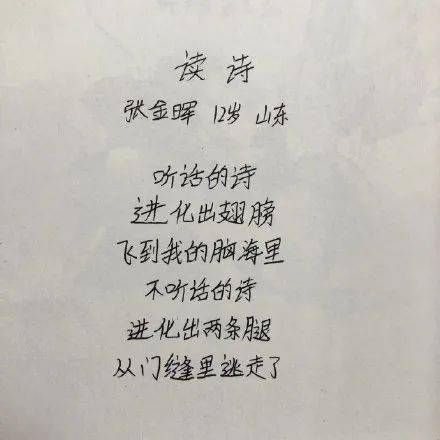 读诗
张金晖 12岁 山东
听话的诗
进化出翅膀
飞到我的脑海里
不听话的诗
进化出两条腿
从门缝里逃走了